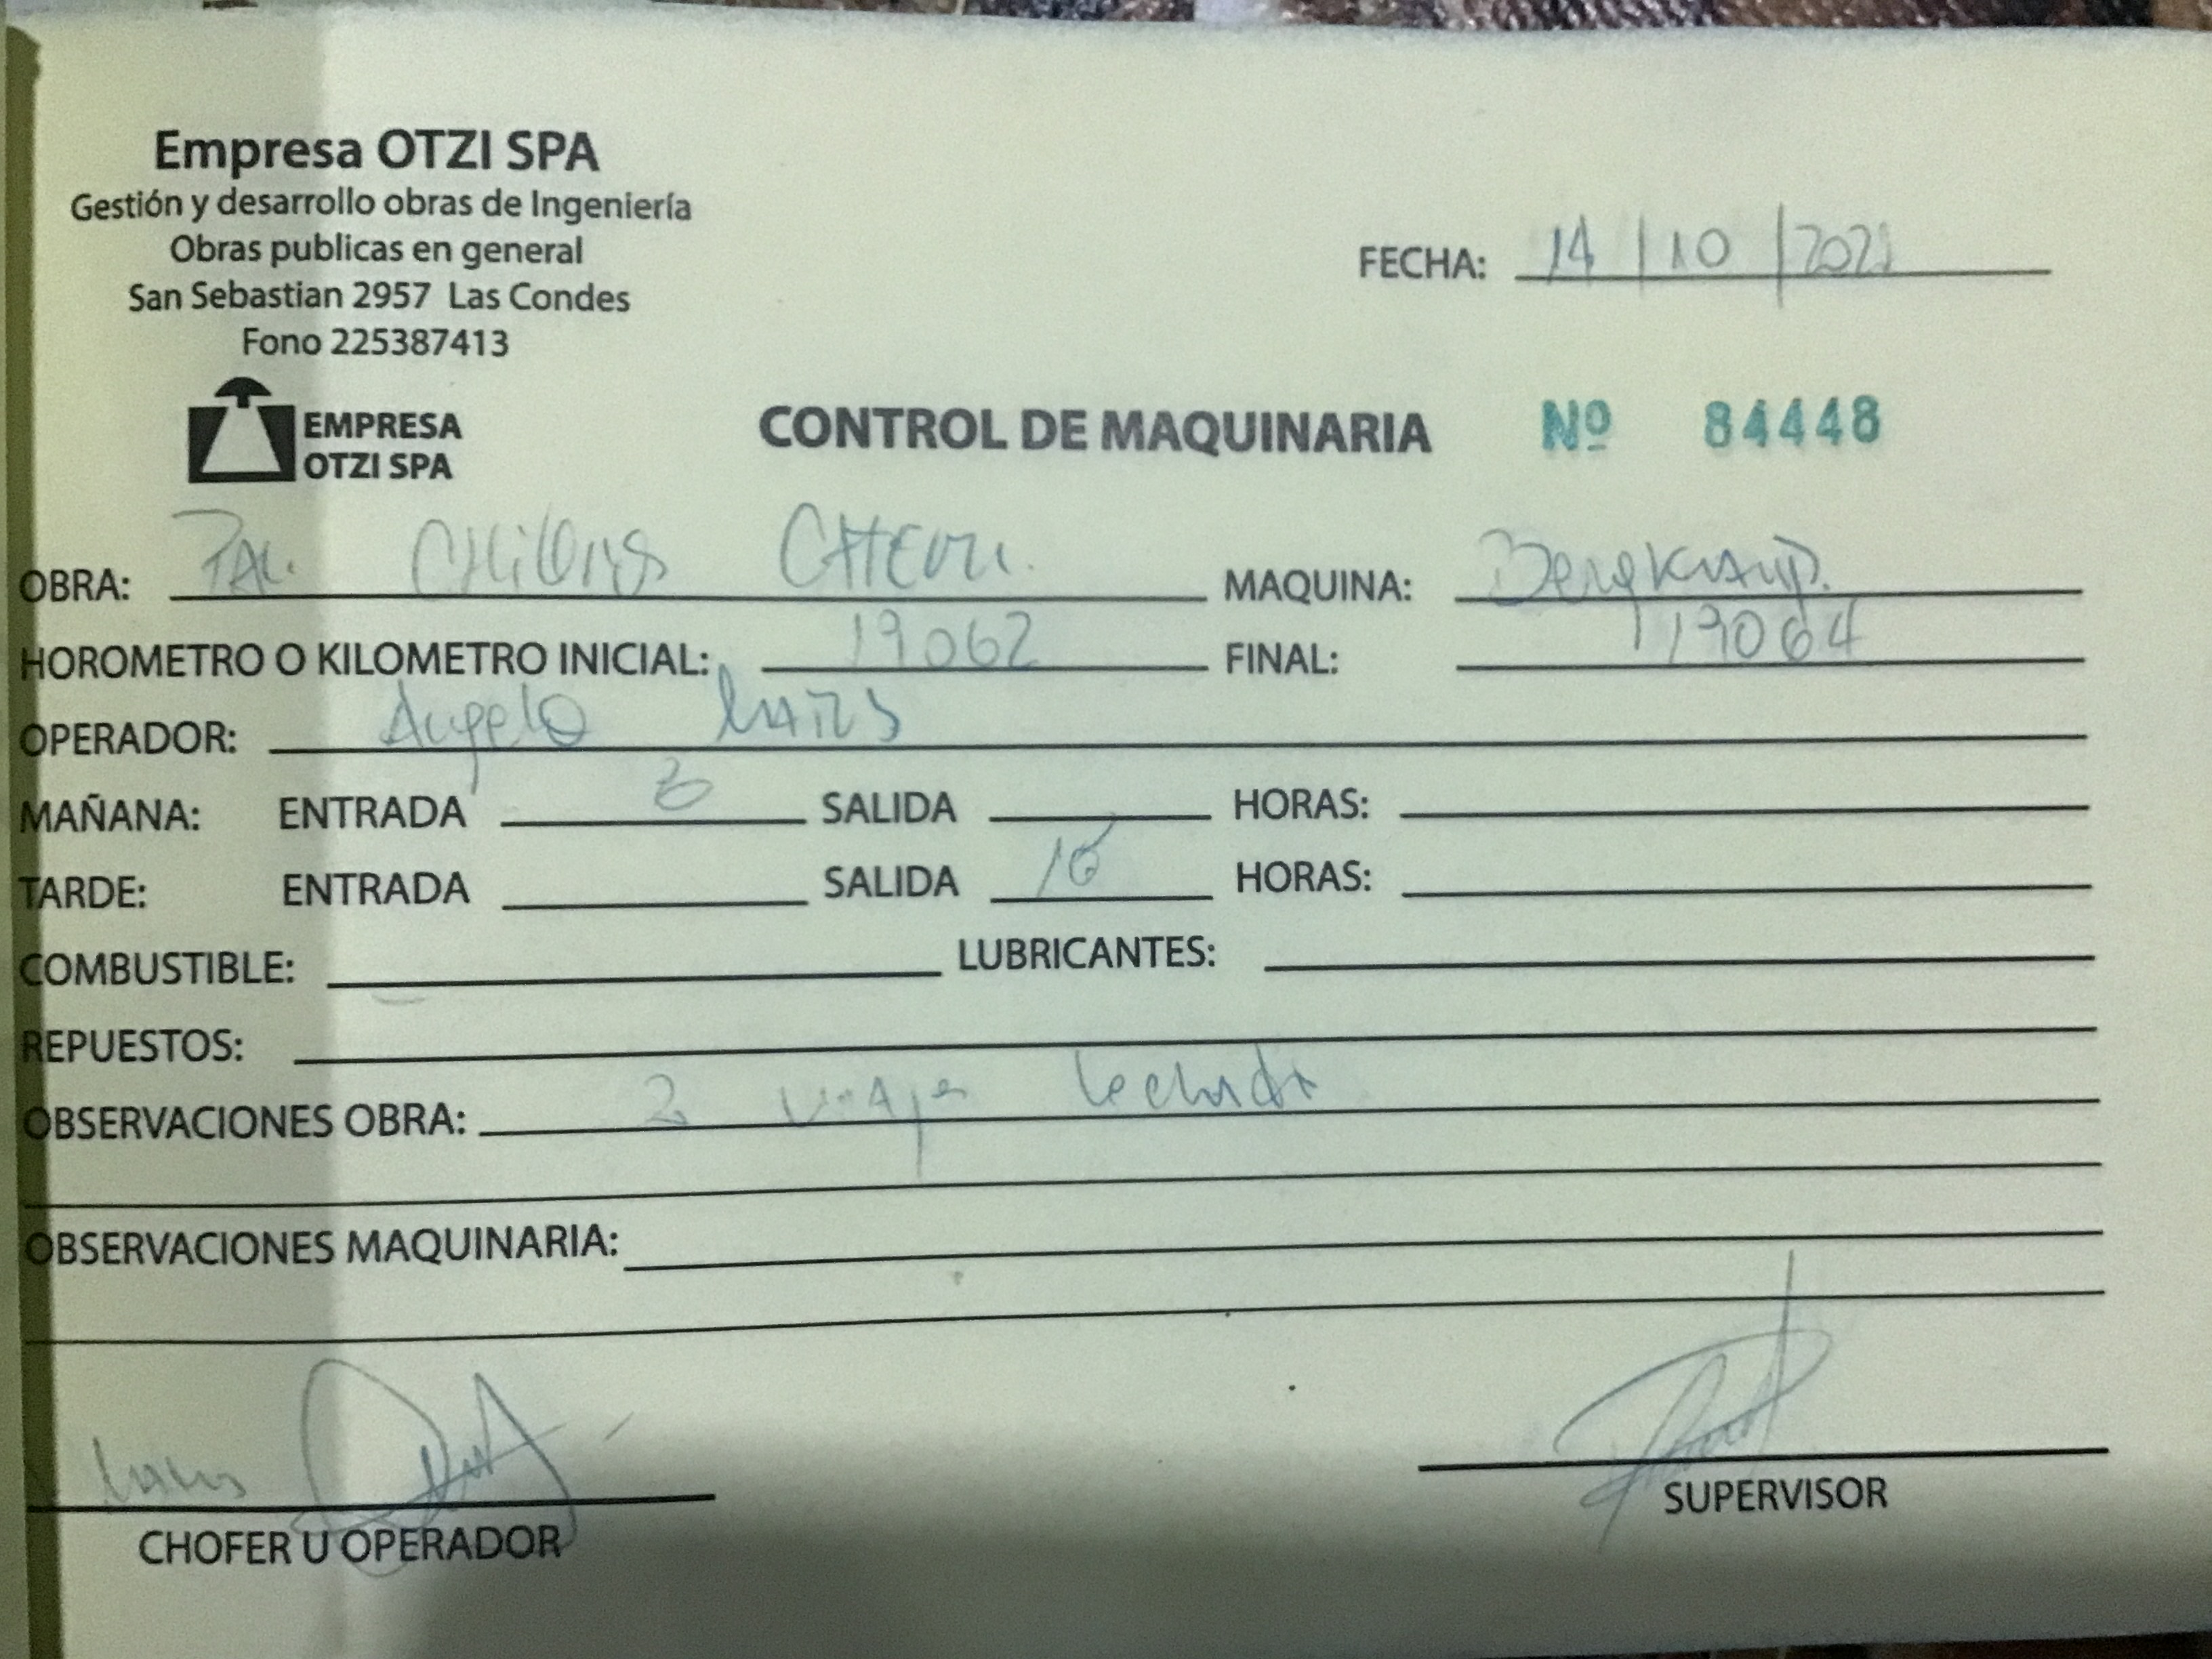 Empresa OTZI SPA
Gestión y desarrollo obras de Ingeniería
Obras publicas en general
San Sebastian 2957 Las Condes
Fono 225387413
FECHA: 14 / 10 / 2021
EMPRESA
OTZI SPA
CONTROL DE MAQUINARIA Nº 84448
OBRA: MAQUINA: Bengkamp.
HOROMETRO O KILOMETRO INICIAL: 19062 FINAL: 19064
OPERADOR: Angelo
MAÑANA: ENTRADA SALIDA HORAS:
TARDE: ENTRADA SALIDA 16 HORAS:
COMBUSTIBLE: LUBRICANTES:
REPUESTOS:
OBSERVACIONES OBRA: 2 viaje lechada
OBSERVACIONES MAQUINARIA:
CHOFER U OPERADOR
SUPERVISOR